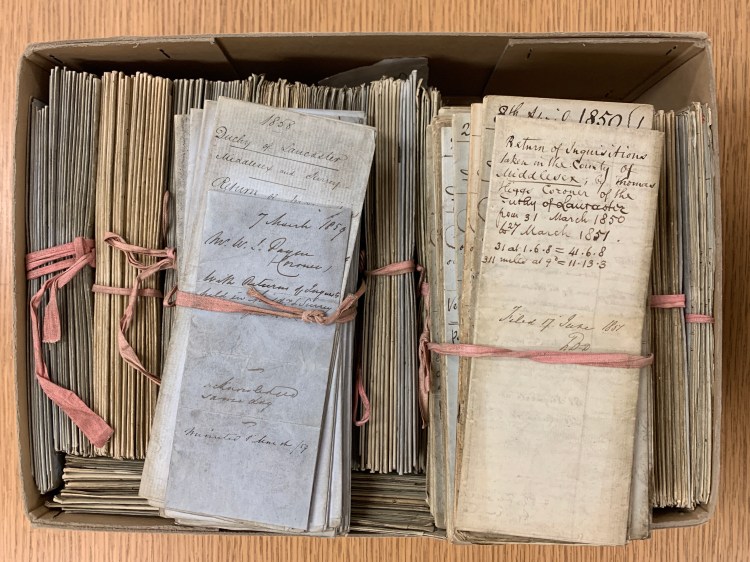 1858
Duchy of Lancaster
Middlesex and Surrey
Return of
7 March 1859
Mr W. J. Payne
Coroner,
With Returns of Inquis
acknowledged
same day
Minuted 1 March /59
1850
Return of Inquisitions
taken in the County of
Middlesex, by Thomas
Higgs Coroner of the
Duchy of Lancaster
from 31 March 1850
to 27 March 1851.
31 at 1.6.8 = 41.6.8
311 miles at 9d = 11-13.3
Filed 17 June 1851